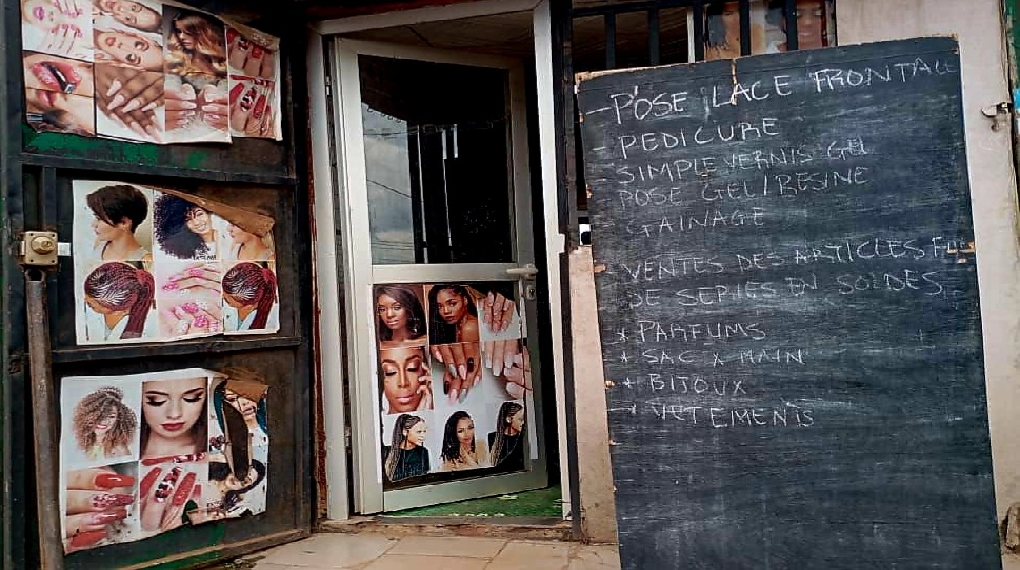 - POSE LACE FRONTALE
- PEDICURE
- SIMPLE VERNIS GEL
POSE GEL/RESINE
GAINAGE
VENTES DES ARTICLES
DE SERIES EN SOLDES
* PARFUMS
* SAC A MAIN
* BIJOUX
* VETEMENTS